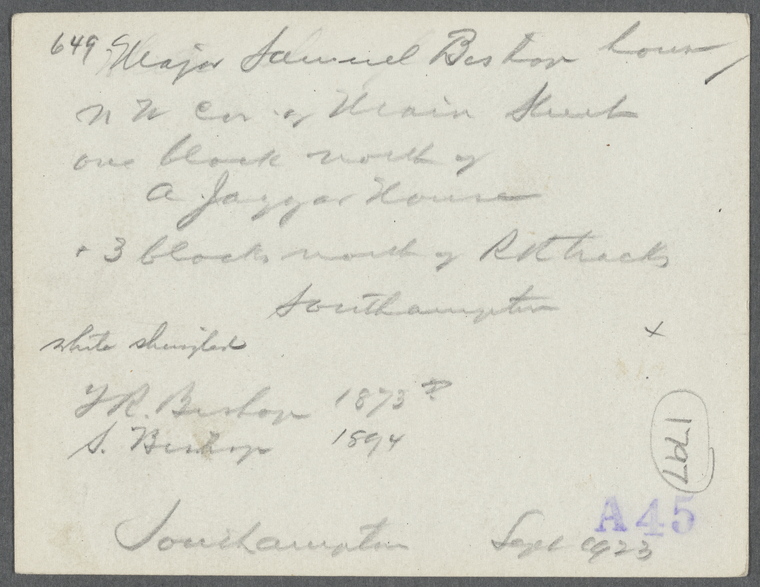 649 Major Samuel Bishop house
N W Cor. of Main Street
one block north of
A Jaggar House
+ 3 blocks north of RR tracks
Southampton
x
white shingled
R. Bishop 1873
S. Bishop 1894
1797
A45
Southampton Sept 1923